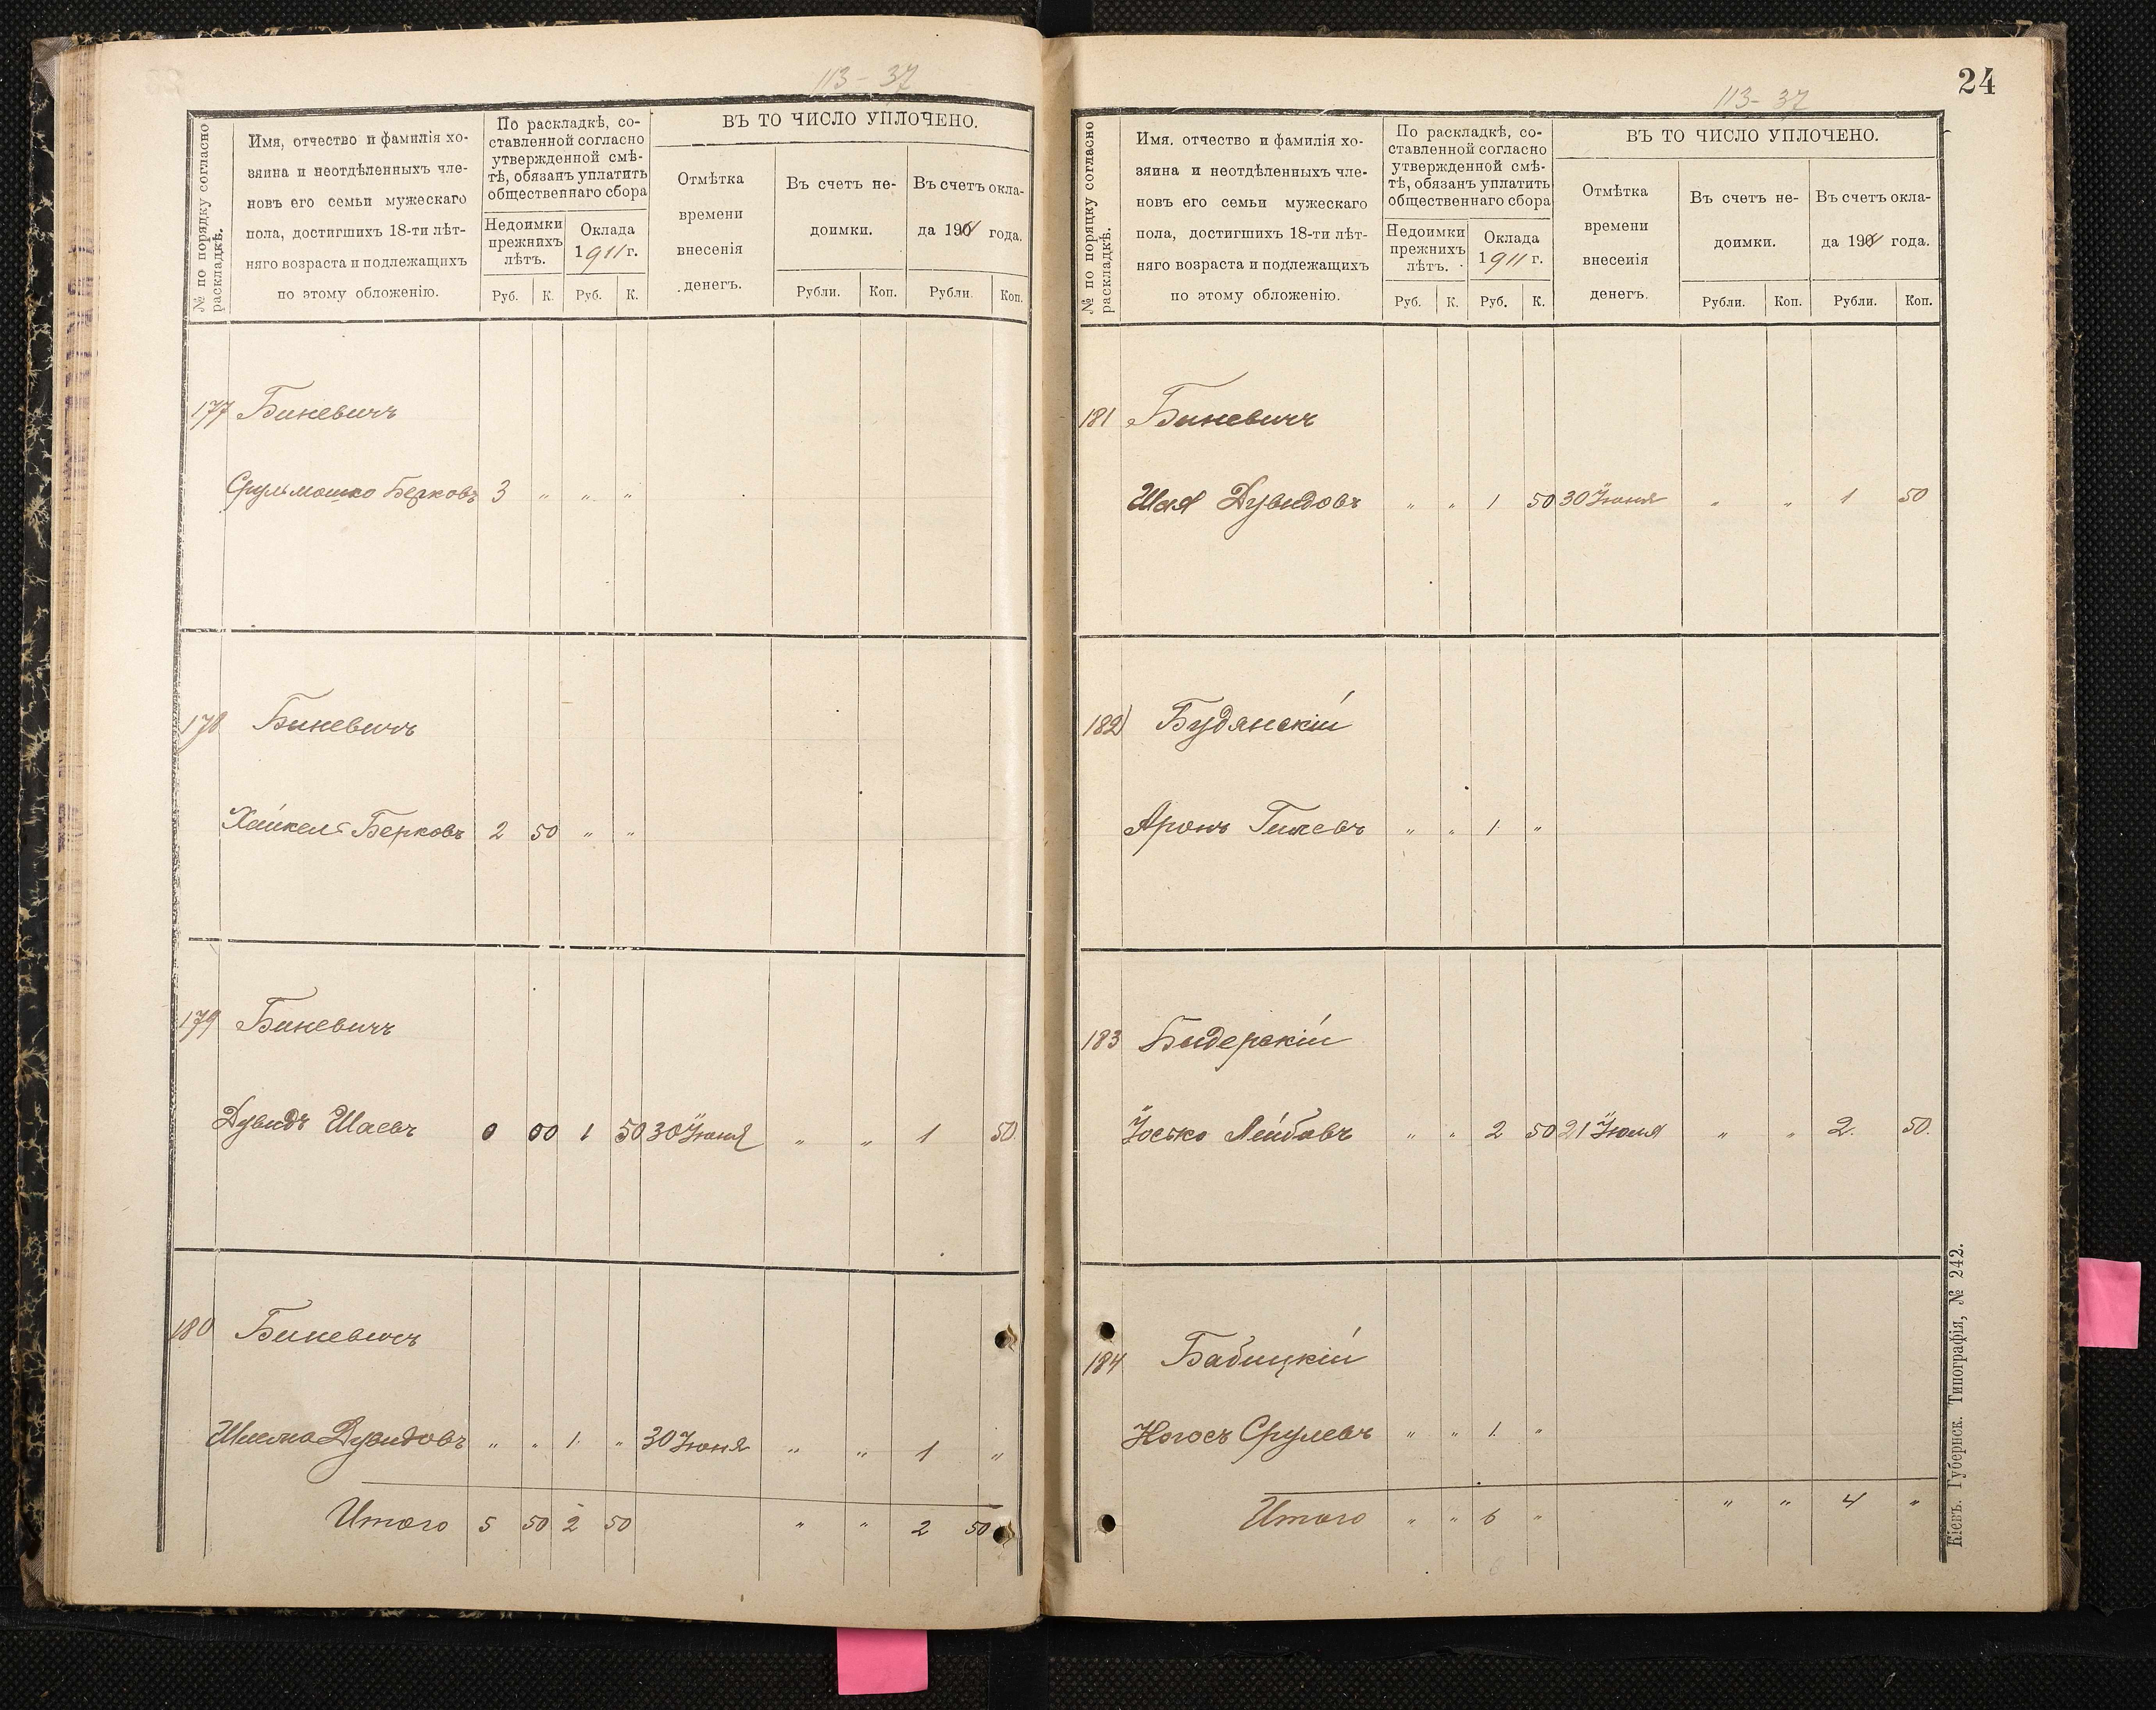 113-37
№ по порядку согласно раскладкѣ.
Имя, отчество и фамилія хо-
зяина и неотдѣленныхъ чле-
новъ его семьи мужескаго
пола, достигшихъ 18-ти лѣт-
няго возраста и подлежащихъ
по этому обложенію.
По раскладкѣ, со-
ставленной согласно
утвержденной смѣ-
тѣ, обязанъ уплатить
общественнаго сбора
Недоимки
прежнихъ
лѣтъ.
Оклада
1911 г.
Руб. К. Руб. К.
ВЪ ТО ЧИСЛО УПЛОЧЕНО.
Отмѣтка
времени
внесенія
денегъ.
Въ счетъ не-
доимки.
Въ счетъ окла-
да 1911 года.
Рубли. Коп. Рубли. Коп.
177 Биневичъ
Срульмошко Берковъ 3 " " "
178 Биневичъ
Хайкель Берковъ 2 50 " "
179 Биневичъ
Дувидъ Шаевъ 0 00 1 50 30 Іюня " " 1 50
180 Биневичъ
Шлема Дувидовъ " " 1 " 30 Іюня " " 1 "
Итого 5 50 2 50 " " 2 50
24
113-37
№ по порядку согласно раскладкѣ.
Имя. отчество и фамилія хо-
зяина и неотдѣленныхъ чле-
новъ его семьи мужескаго
пола, достигшихъ 18-ти лѣт-
няго возраста и подлежащихъ
по этому обложенію.
По раскладкѣ, со-
ставленной согласно
утвержденной смѣ-
тѣ, обязанъ уплатить
общественнаго сбора
Недоимки
прежнихъ
лѣтъ.
Оклада
1911 г.
Руб. К. Руб. К.
ВЪ ТО ЧИСЛО УПЛОЧЕНО.
Отмѣтка
времени
внесенія
денегъ.
Въ счетъ не-
доимки.
Въ счетъ окла-
да 1911 года.
Рубли. Коп. Рубли. Коп.
181 Биневичъ
Шая Дувидовъ " " 1 50 30 Іюня " " 1 50
182) Будянскій
Аронъ " " 1 "
183 Бидерскій
Іосько Лейбовъ " " 2 50 21 " " 2. 50.
184 Бабицкій
Срулевъ " " 1. "
Итого " " 6 " " " 4 "
6
Кіевъ. Губернск. Типографія, № 242.